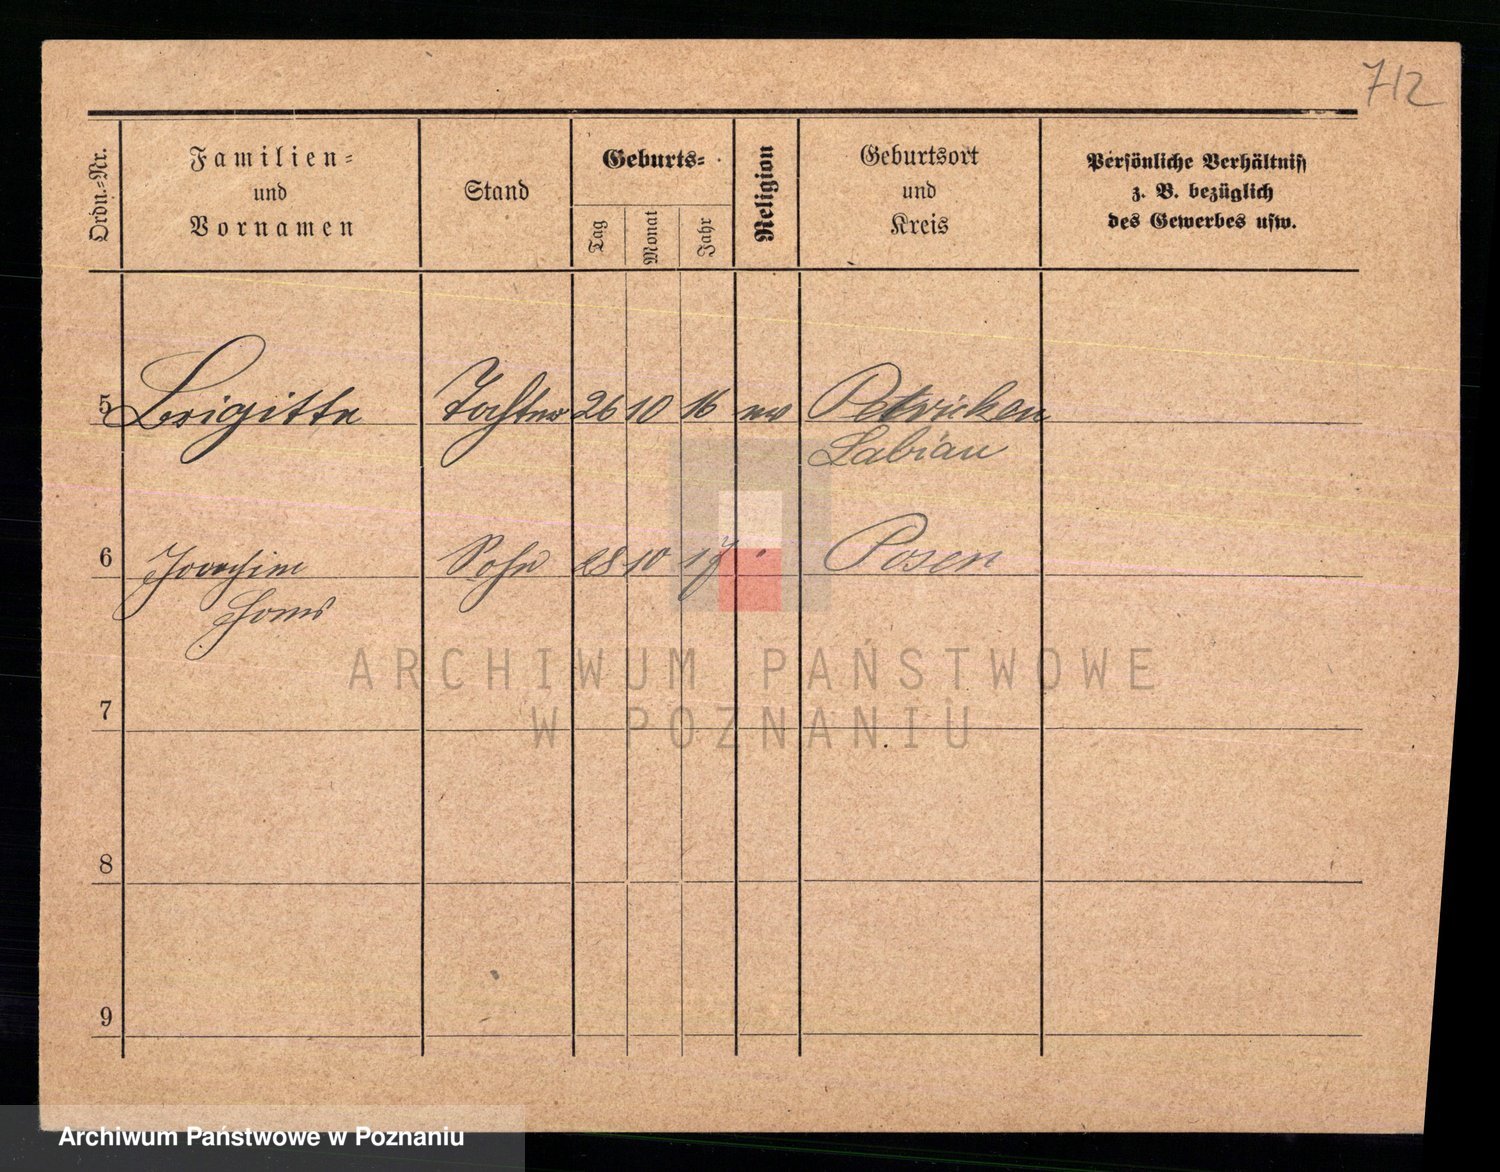 712
Ordn.-Nr.
Familien-
und
Vornamen
Stand
Geburts-
Tag
Monat
Jahr
Religion
Geburtsort
und
Kreis
Persönliche Verhältniss
z. B. bezüglich
des Gewerbes usw.
5 Brigitte Tochter 26 10 16 ev Petricken
Labiau
6 Joachim Sohn 28 10 17 Posen
7
8
9
ARCHIWUM PAŃSTWOWE
W POZNANIU
Archiwum Państwowe w Poznaniu